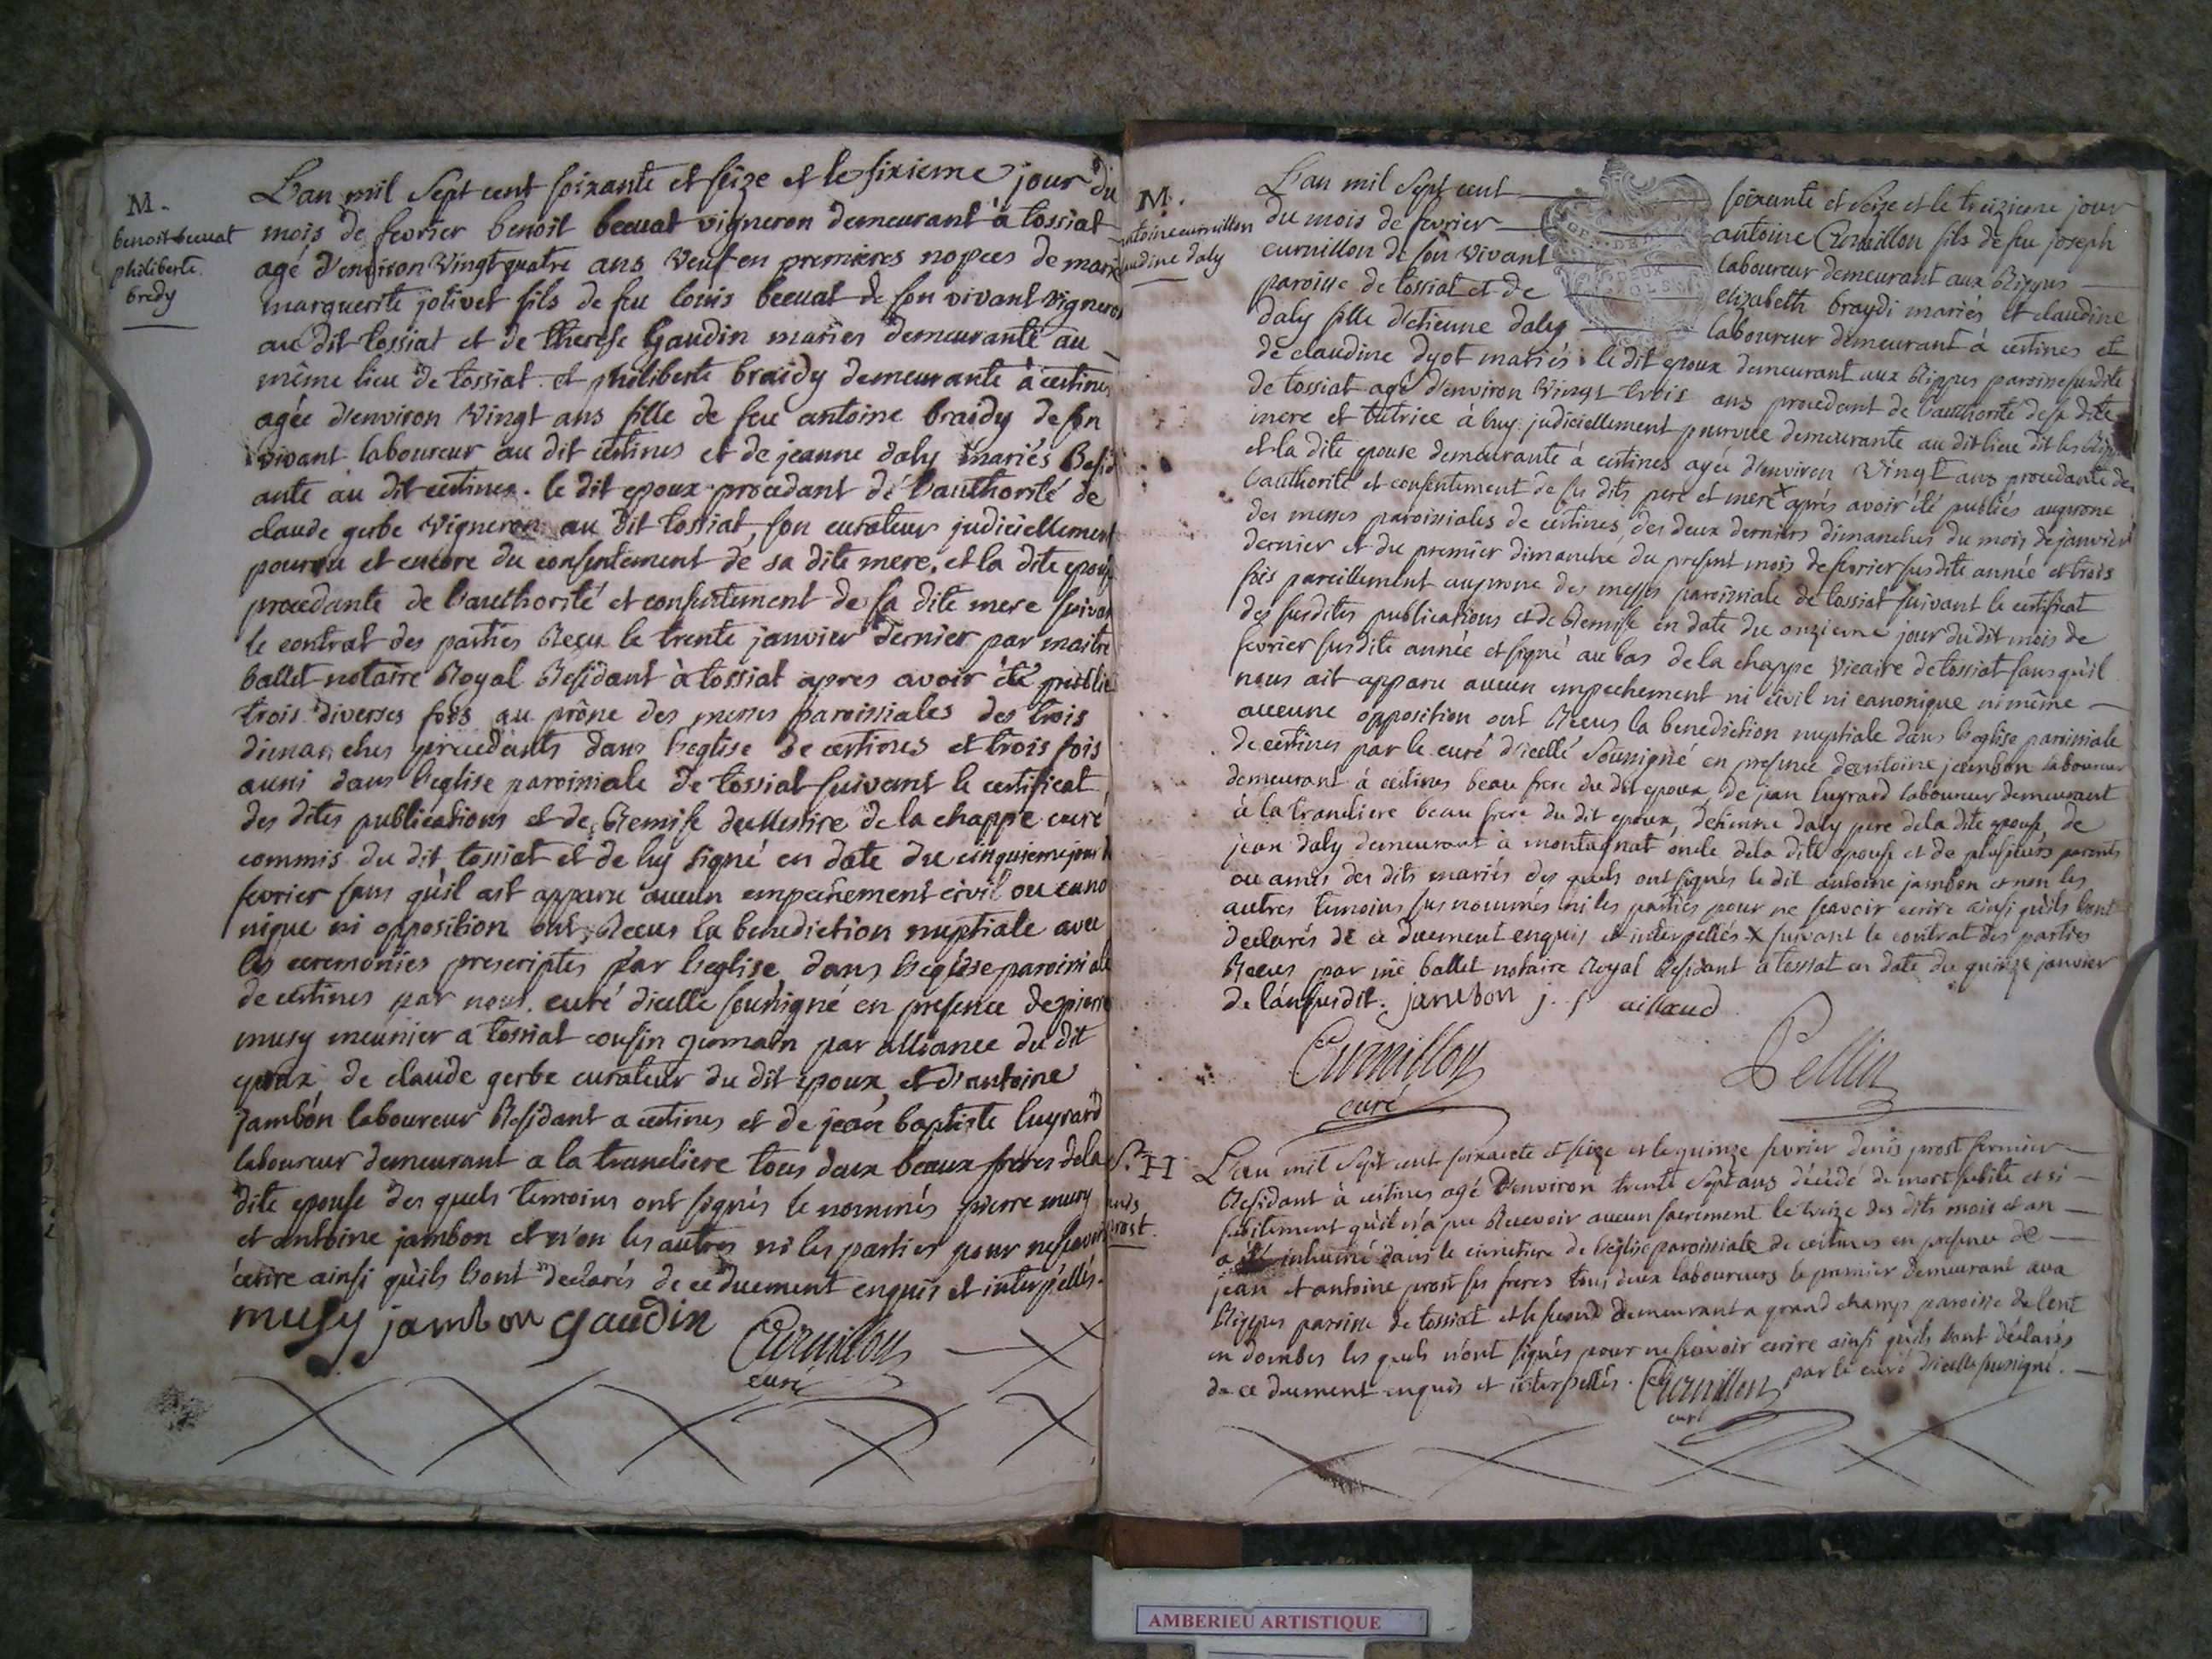 M.
benoit becuat
philiberte
bredy
L'an mil sept cent soixante et seize et le sixieme jour du
mois de fevrier benoit becuat vigneron demeurant à tossiat
agé d'environ vingt quatre ans veuf en premieres nopces de marie
marguerite jolivet fils de feu louis becuat de son vivant vigneron
au dit tossiat et de therese Gaudin mariés demeurante au
même lieu de tossiat. et philiberte braidy demeurante à certines
agée d'environ vingt ans fille de feu antoine braidy de son
vivant laboureur au dit certines et de jeanne daly mariés Resid
ante au dit certines. le dit epoux procedant de l'authorité de
claude gerbe vigneron au dit tossiat, son curateur judiciellement
pourvu et encore du consentement de sa dite mere, et la dite epouse
procedante de l'authorité et consentement de sa dite mere suivant
le contrat des parties Reçu le trente janvier dernier par maitre
ballet notaire Royal Residant à tossiat apres avoir été publié
trois diverses fois au prône des messes paroissiales des trois
dimanches précedents dans l'eglise de certines et trois fois
aussi dans l'eglise paroissiale de tossiat suivant le certificat
des dites publications et de Remise de Messire de la chappe curé
commis du dit tossiat et de luy signé en date du cinquieme jour de
fevrier sans qu'il ait apparu aucun empechement civil ou cano
nique ni opposition ont Recus la benediction nuptiale avec
les ceremonies prescriptes par l'eglise dans l'eglise paroissiale
de certines par nous curé d'icelle soussigné en presence de pierre
musy meunier a tossiat cousin germain par alliance du dit
epoux de claude gerbe curateur du dit epoux, et d'antoine
jambon laboureur Residant a certines et de jean baptiste lugrard
laboureur demeurant a la tranclière tous deux beaux freres de la
dite epouse des quels temoins ont signés le nommés pierre musy
et antoine jambon et n'on les autres ni les parties pour ne scavoir
écrire ainsi qu'ils l'ont declarés de ce duement enquis et interpéllés.
musy jambon gaudin
Curnillon
curé
M.
antoine curnillon
claudine daly
L'an mil sept cent soixante et seize et le treizieme jour
du mois de fevrier antoine Curnillon fils de feu joseph
curnillon de son vivant laboureur demeurant aux Rippes
paroisse de tossiat et de elizabeth braydi mariés et claudine
daly fille d'etienne daly laboureur demeurant à certines et
de claudine dyot mariés. le dit epoux demeurant aux Rippes paroisse susdite
de tossiat agé d'environ vingt trois ans procedant de l'authorité de sa dite
mere et tutrice à luy judiciellement pourvue demeurante au dit lieu dit les Rippes
et la dite epouse demeurante à certines agée d'environ vingt ans procedante de
l'authorité et consentement de ses dits pere et mere x après avoir été publiés au prone
des messes paroissiales de certines, des deux derniers dimanches du mois de janvier
dernier et du premier dimanche du present mois de fevrier susdite année et trois
fois pareillement au prone des messes paroissiale de tossiat suivant le certificat
des susdites publications et de Remise en date du onzieme jour du dit mois de
fevrier susdite année et signé au bas de la chappe vicaire de tossiat sans qu'il
nous ait apparu aucun empechement ni civil ni canonique ni même
aucune opposition ont Recus la benediction nuptiale dans l'eglise paroissiale
de certines par le curé d'icelle soussigné en presence d'antoine jambon laboureur
demeurant à certines beau frere du dit epoux, de jean lugrard laboureur demeurant
à la tranclière beau frere du dit epoux, d'etienne daly pere de la dite epouse, de
jean daly demeurant à montagnat oncle de la dite epouse et de plusieurs parents
ou amis des dits mariés des quels ont signés le dit antoine jambon et non les
autres temoins sus nommés ni les parties pour ne scavoir ecrire ainsi qu'ils l'ont
declarés de ce duement enquis et interpellés x suivant le contrat des parties
Recus par me ballet notaire Royal Residant a tossiat en date du quinze janvier
de l'an susdit. jambon j. f aillaud
Curnillon
curé
Pellin
S. H
denis
prost.
L'an mil sept cent soixante et seize et le quinze fevrier denis prost fermier
Residant à certines agé d'environ trente sept ans décédé de mort subite et si
subitement qu'il n'a pu Recevoir aucun sacrement le treize des dits mois et an
a été inhumé dans le cimetiere de l'eglise paroissiale de certines en presence de
jean et antoine prost ses freres tous deux laboureurs le premier demeurant aux
Rippes paroisse de tossiat et le second demeurant a grand champ paroisse de lent
en dombes les quels n'ont signés pour ne scavoir ecrire ainsi qu'ils l'ont déclarés
de ce duement enquis et interpellés. par le curé d'icelle soussigné.
Curnillon
curé
AMBERIEU ARTISTIQUE